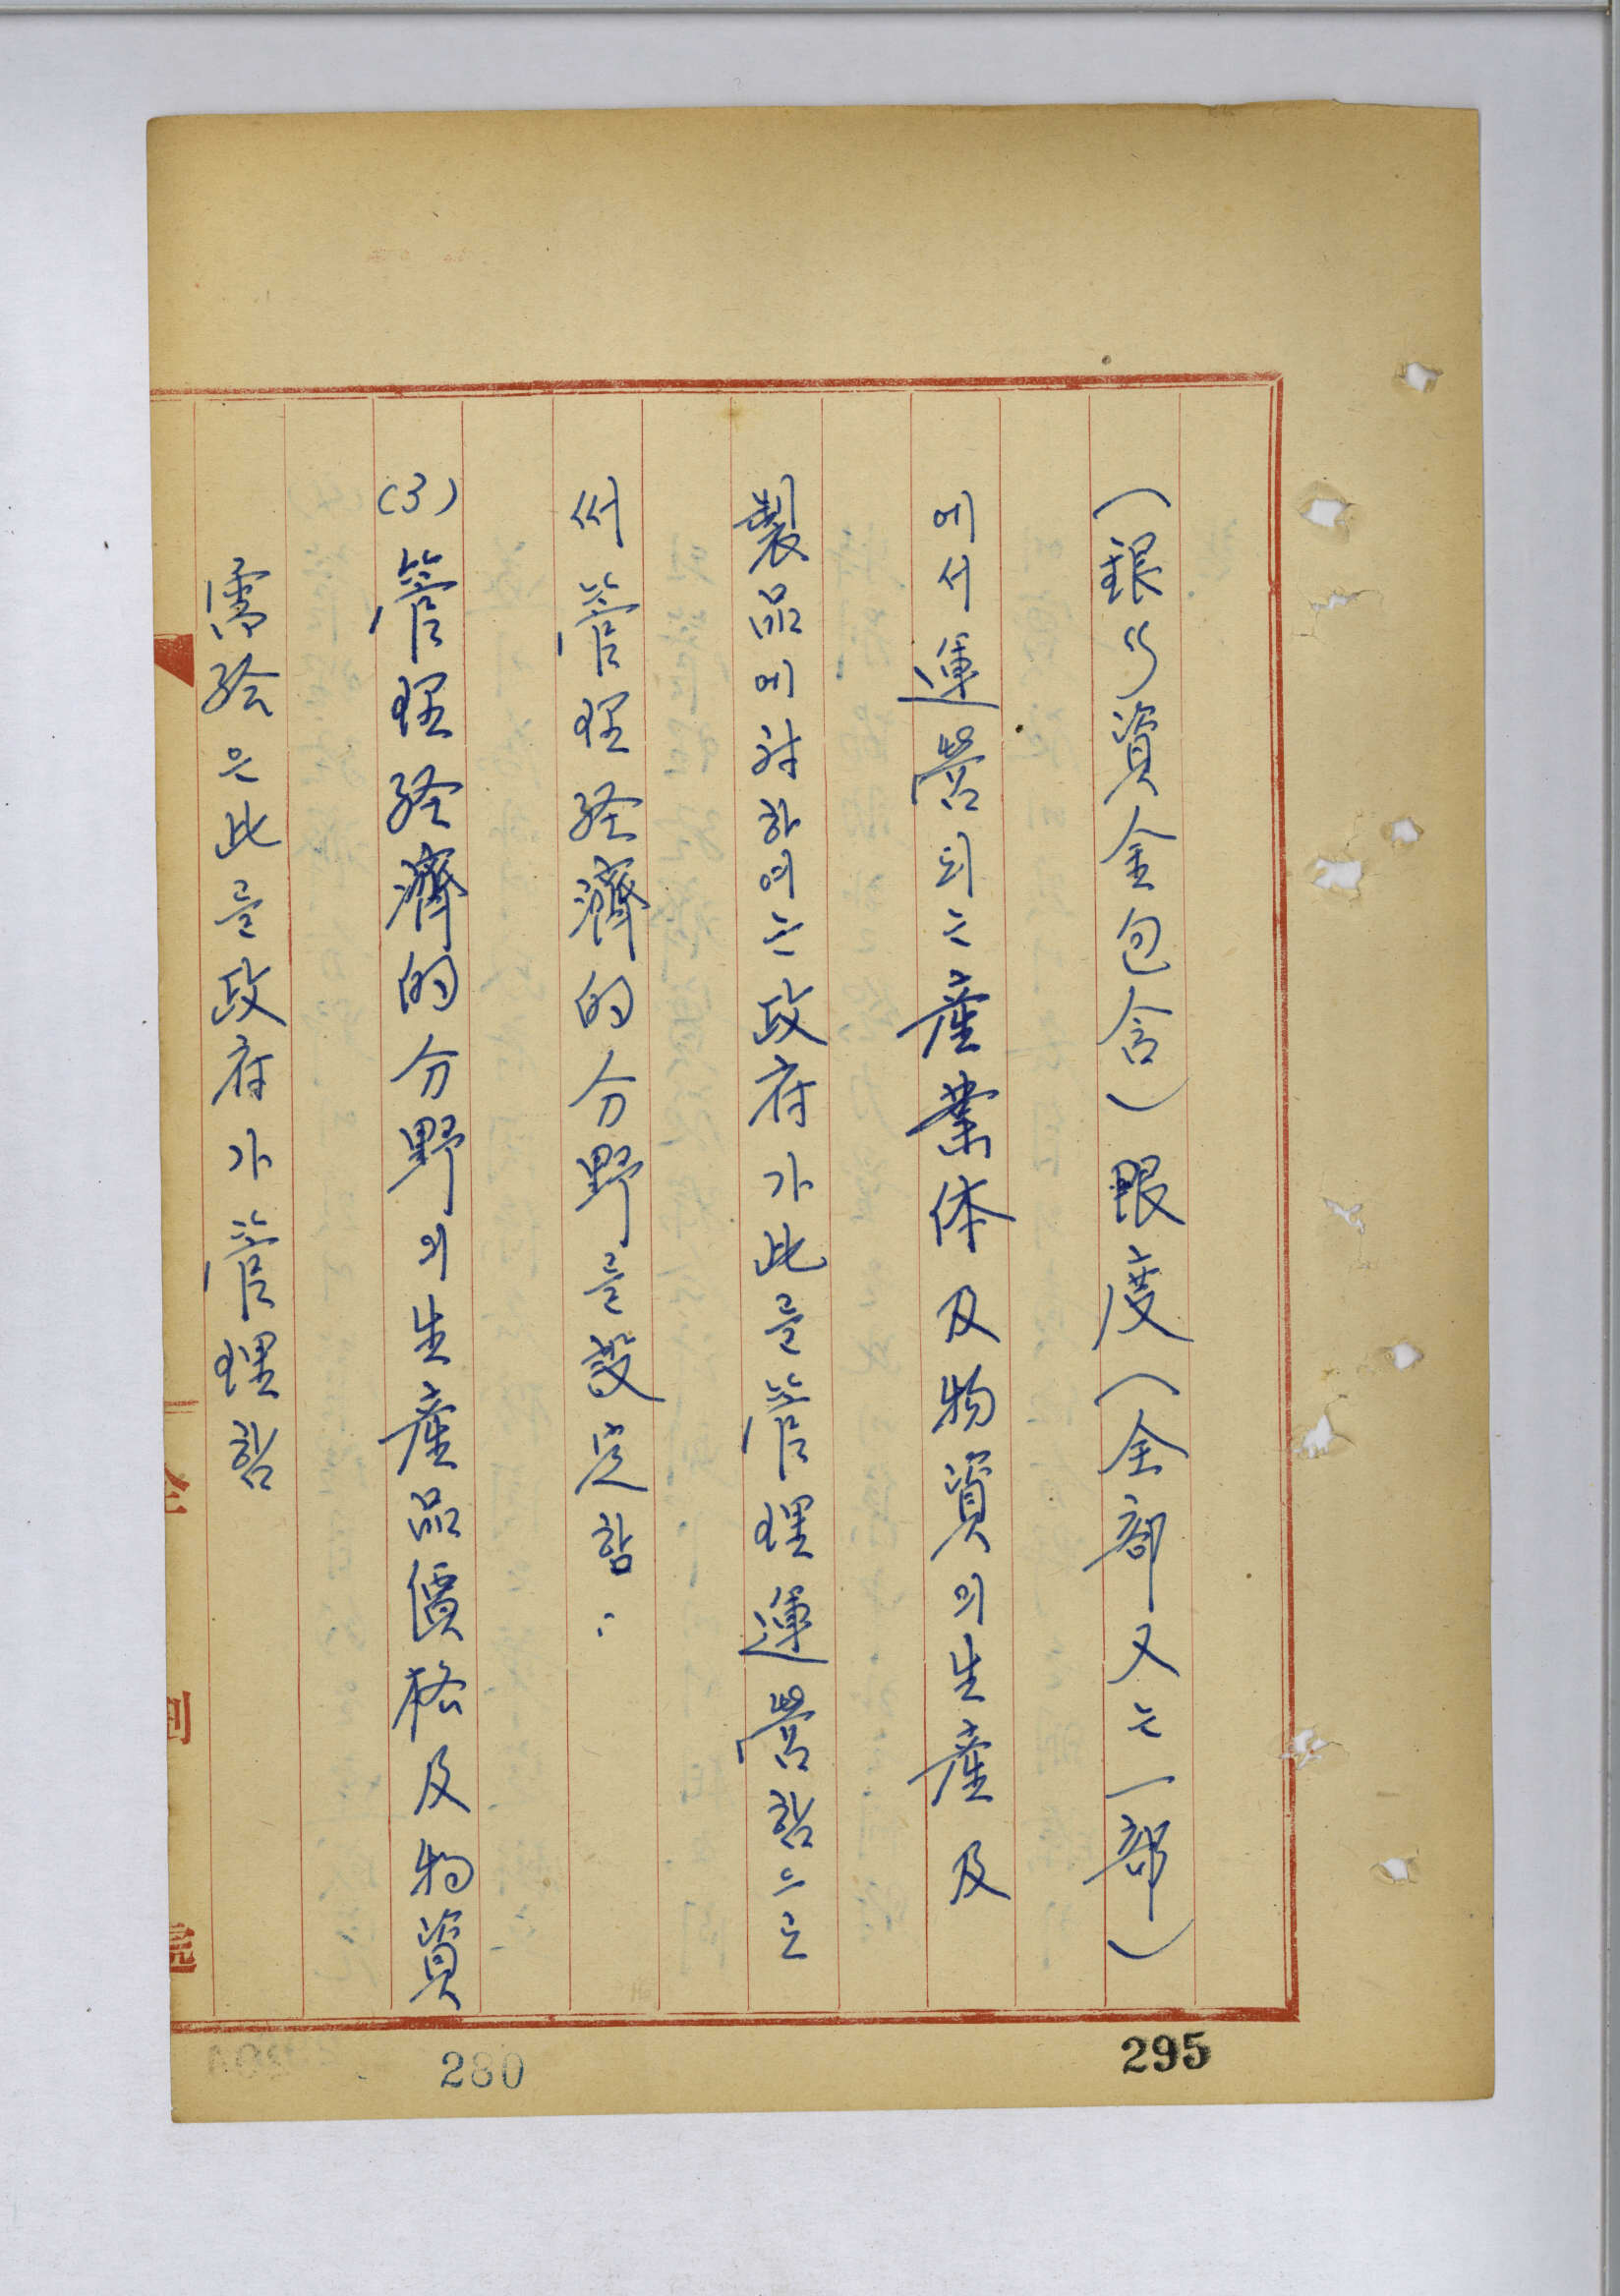 (現的資金包含) 限度 (全部又는 一部)
에서 運營되는 産業体 及 物資의 生産 及
製品에 対하여는 政府가 此를 管理運營함으로
서 管理経濟的 分野를 設定함.
(3) 管理経濟的 分野의 生産品 價格 及 物資
需給은 此를 政府가 管理함
280
295